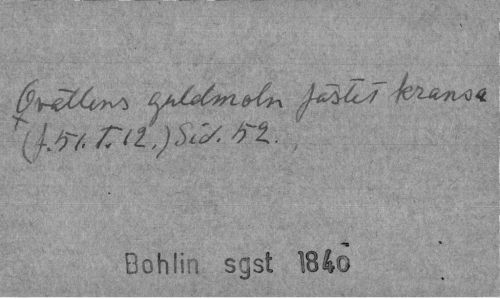 Qvällens guldmoln fästet kransa
(f. 51. T. 12.) Sid. 52.
Bohlin sgst 1840